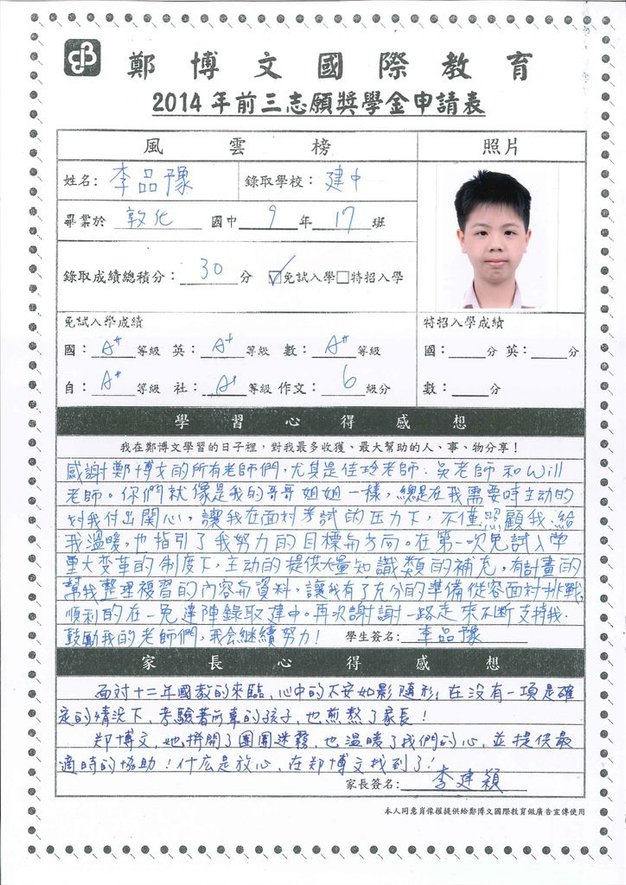 鄭博文國際教育
2014年前三志願獎學金申請表
風雲榜
照片
姓名：李品豫 錄取學校：建中
畢業於 敦化 國中 9 年 17 班
錄取成績總積分：30 分 ☑免試入學□特招入學
免試入學成績
國：A⁺⁺ 等級 英：A⁺ 等級 數：A⁺⁺ 等級
自：A⁺⁺ 等級 社：A⁺ 等級 作文：6 級分
特招入學成績
國：____分 英：____分
數：____分
學習心得感想
我在鄭博文學習的日子裡，對我最多收獲、最大幫助的人、事、物分享！
感謝鄭博文的所有老師們，尤其是佳玲老師、吳老師和Will
老師。你們就像是我的哥哥姐姐一樣，總是在我需要時主動的
对我付出関心，讓我在面对考試的压力下，不僅照顧我、給
我溫暖，也指引了我努力的目標与方向。在第一次免試入学
重大变革的制度下，主动的提供大量知識類的補充，有計畫的
幫我整理複習的內容与資料，讓我有了充分的準備從容面对挑戰，
順利的在一免連陣錄取建中。再次謝謝一路走來不断支持我、
鼓勵我的老師們，我会継續努力！
學生簽名：李品豫
家長心得感想
面对十二年國教的來臨，心中的不安如影隨形，在沒有一項是確
定的情況下，考驗著所有的孩子，也煎熬了家長！
郑博文，她撥開了團團迷霧，也溫暖了我們的心，並提供最
適時的協助！什広是放心，在郑博文找到了！
家長簽名：李建穎
本人同意肖像權提供給鄭博文國際教育做廣告宣傳使用